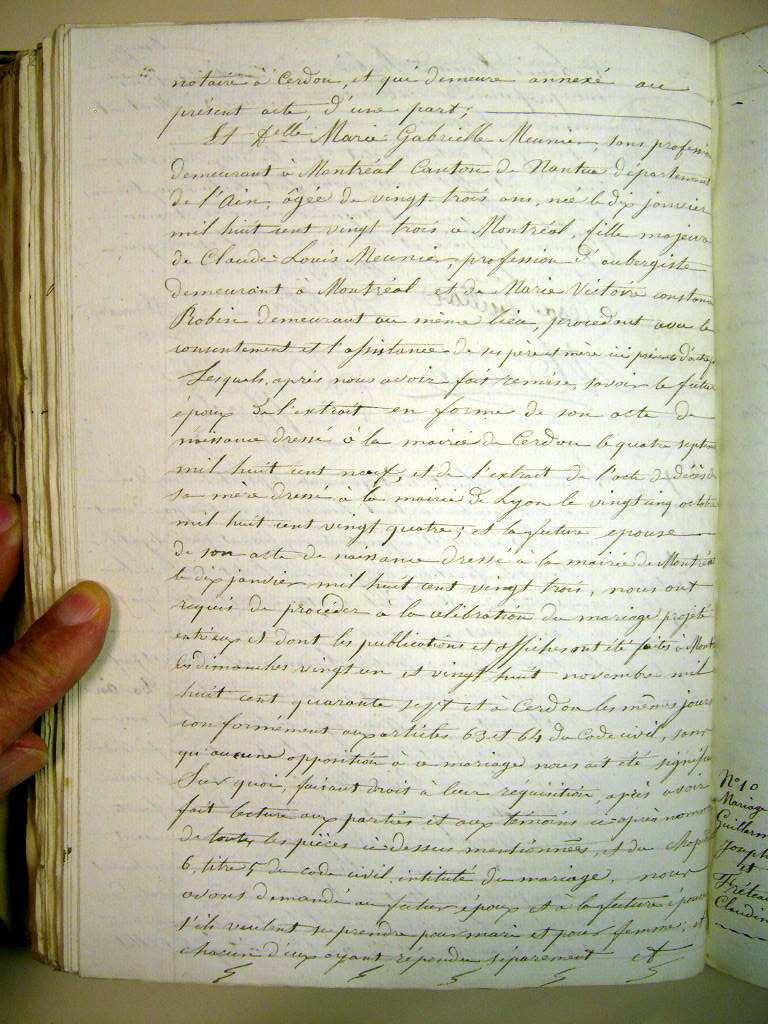 notaire à Cerdon, et qui demeure annexé au
présent acte, d'une part;
Et Delle Marie-Gabrielle Meunier, sans profession
demeurant à Montréal Canton de Nantua département
de l'Ain, âgée de vingt-trois ans, née le dix janvier
mil huit cent vingt trois à Montréal, fille majeure
de Claude-Louis Meunier, profession d'aubergiste
demeurant à Montréal et de Marie Victoire constance
Robin demeurant au même lieu, procédant avec le
consentement et l'assistance de ses père et mère ici
Lesquels, après nous avoir fait remise, savoir le futur
époux de l'extrait en forme de son acte de
naissance dressé à la mairie de Cerdon le quatre septem
mil huit cent neuf, et de l'extrait de l'acte de décès de
sa mère dressé à la mairie de Lyon le vingt cinq octobre
mil huit cent vingt quatre; et la future epouse
de son acte de naissance dressé à la mairie de Montréal
le dix janvier mil huit cent vingt trois, nous ont
requis de procéder à la célébration du mariage projeté
entr'eux et dont les publications et affiches ont été faites à Mont
les dimanches vingt un et vingt huit novembre mil
huit cent quarante sept et à Cerdon les mêmes jours
conformément aux articles 63 et 64 du Code civil, sans
qu'aucune opposition à ce mariage nous ait été signifiée
Sur quoi, faisant droit à leur réquisition, après avoir
fait lecture aux parties et aux témoins ci-après nommés
de toutes les pièces ci-dessus mentionnées, et du chapitre
6, titre 5 du code civil intitulé du mariage, nous
avons demandé au futur époux et à la future épouse
s'ils veulent se prendre pour mari et pour femme; et
chacun d'eux ayant répondu séparément et
N° 10
Mariage
Guillerm
Joseph
et
Fréteau
Claudin